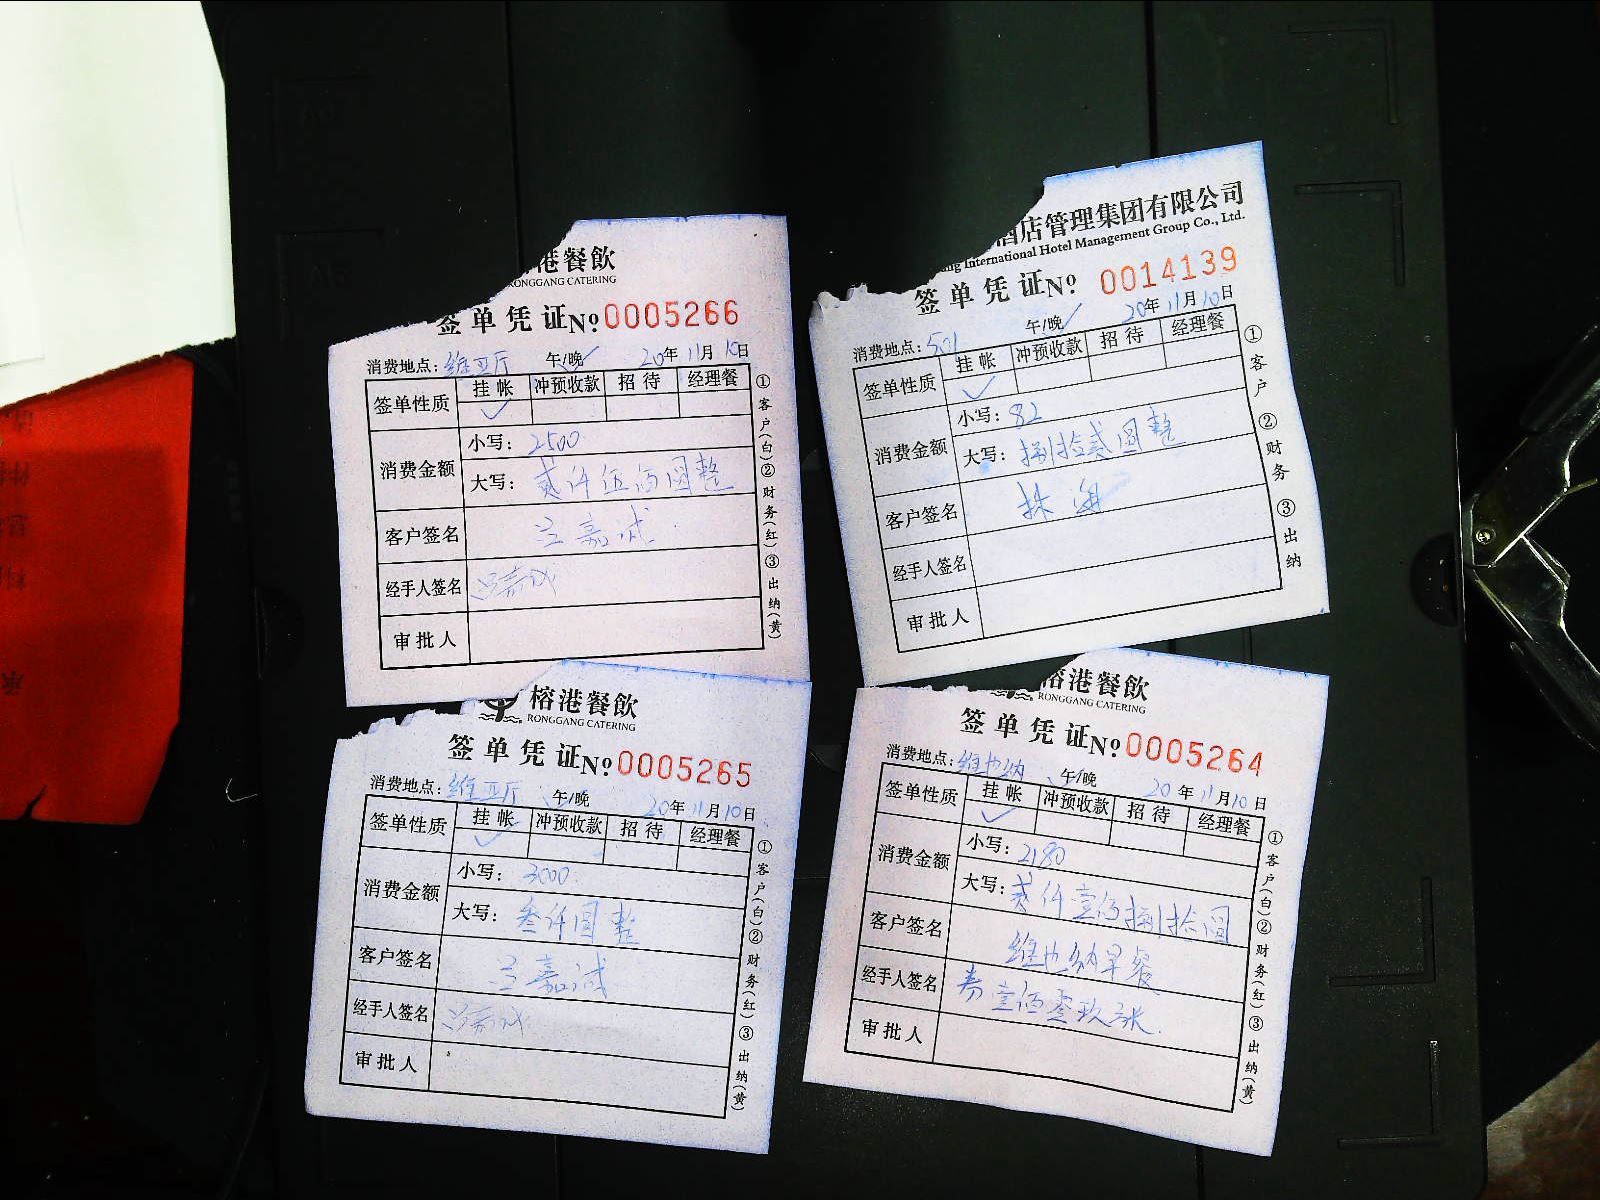 港餐飲
RONGGANG CATERING
签单凭证 No 0005266
消费地点：维亚厅 午/晚 20年11月10日
签单性质 挂帐 冲预收款 招待 经理餐
消费金额 小写：2500
大写：贰仟伍佰圆整
客户签名
经手人签名
审批人
①客户(白)②财务(红)③出纳(黄)
酒店管理集团有限公司
International Hotel Management Group Co., Ltd.
签单凭证 No 0014139
消费地点：501 午/晚 20年11月10日
签单性质 挂帐 冲预收款 招待 经理餐
消费金额 小写：82
大写：捌拾贰圆整
客户签名
经手人签名
审批人
①客户 ②财务 ③出纳
榕港餐飲
RONGGANG CATERING
签单凭证 No 0005265
消费地点：维亚厅 午/晚 20年11月10日
签单性质 挂帐 冲预收款 招待 经理餐
消费金额 小写：3000
大写：叁仟圆整
客户签名
经手人签名
审批人
①客户(白)②财务(红)③出纳(黄)
榕港餐飲
RONGGANG CATERING
签单凭证 No 0005264
消费地点：维也纳 午/晚 20年11月10日
签单性质 挂帐 冲预收款 招待 经理餐
消费金额 小写：2180
大写：贰仟壹佰捌拾圆
客户签名 维也纳早餐
经手人签名 券壹佰零玖张
审批人
①客户(白)②财务(红)③出纳(黄)